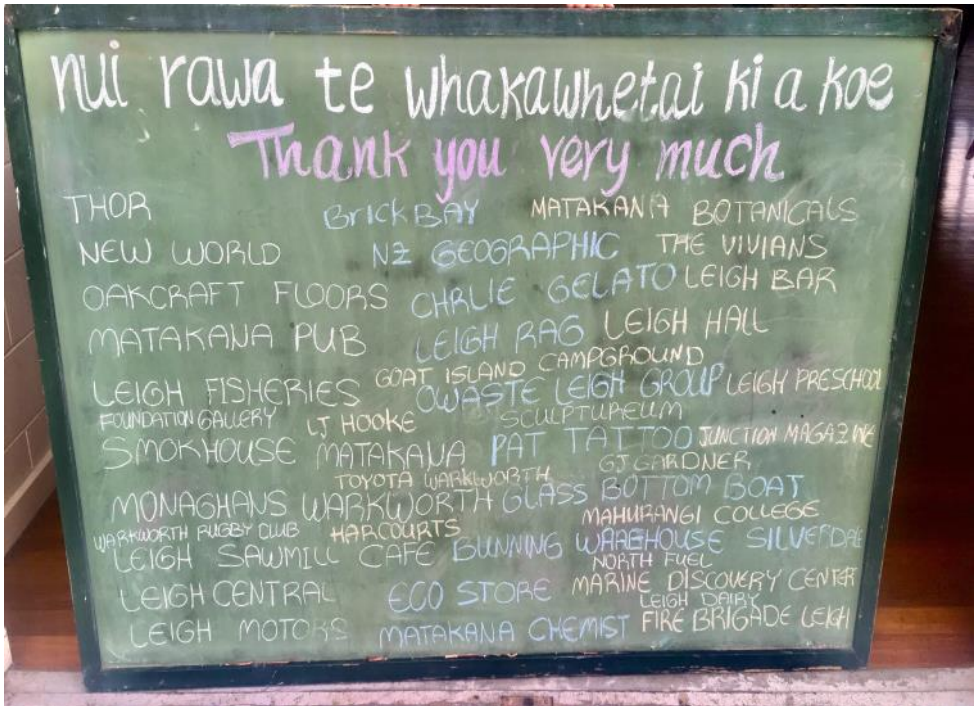 nui rawa te whakawhetai ki a koe
Thank you very much
THOR BRICKBAY MATAKANA BOTANICALS
NEW WORLD NZ GEOGRAPHIC THE VIVIANS
OAKCRAFT FLOORS CHRLIE GELATO LEIGH BAR
MATAKANA PUB LEIGH RAG LEIGH HALL
GOAT ISLAND CAMPGROUND
LEIGH FISHERIES OWASTE LEIGH GROUP LEIGH PRESCHOOL
FOUNDATION GALLERY LJ HOOKE SCULPTUREUM
SMOKHOUSE MATAKANA PAT TATTOO JUNCTION MAGAZINE
TOYOTA WARKWORTH GJ GARDNER
MONAGHANS WARKWORTH GLASS BOTTOM BOAT
WARKWORTH RUGBY CLUB HARCOURTS MAHURANGI COLLEGE
LEIGH SAWMILL CAFE BUNNING WAREHOUSE SILVERDALE
NORTH FUEL
LEIGH CENTRAL ECO STORE MARINE DISCOVERY CENTER
LEIGH DAIRY
LEIGH MOTORS MATAKANA CHEMIST FIRE BRIGADE LEIGH